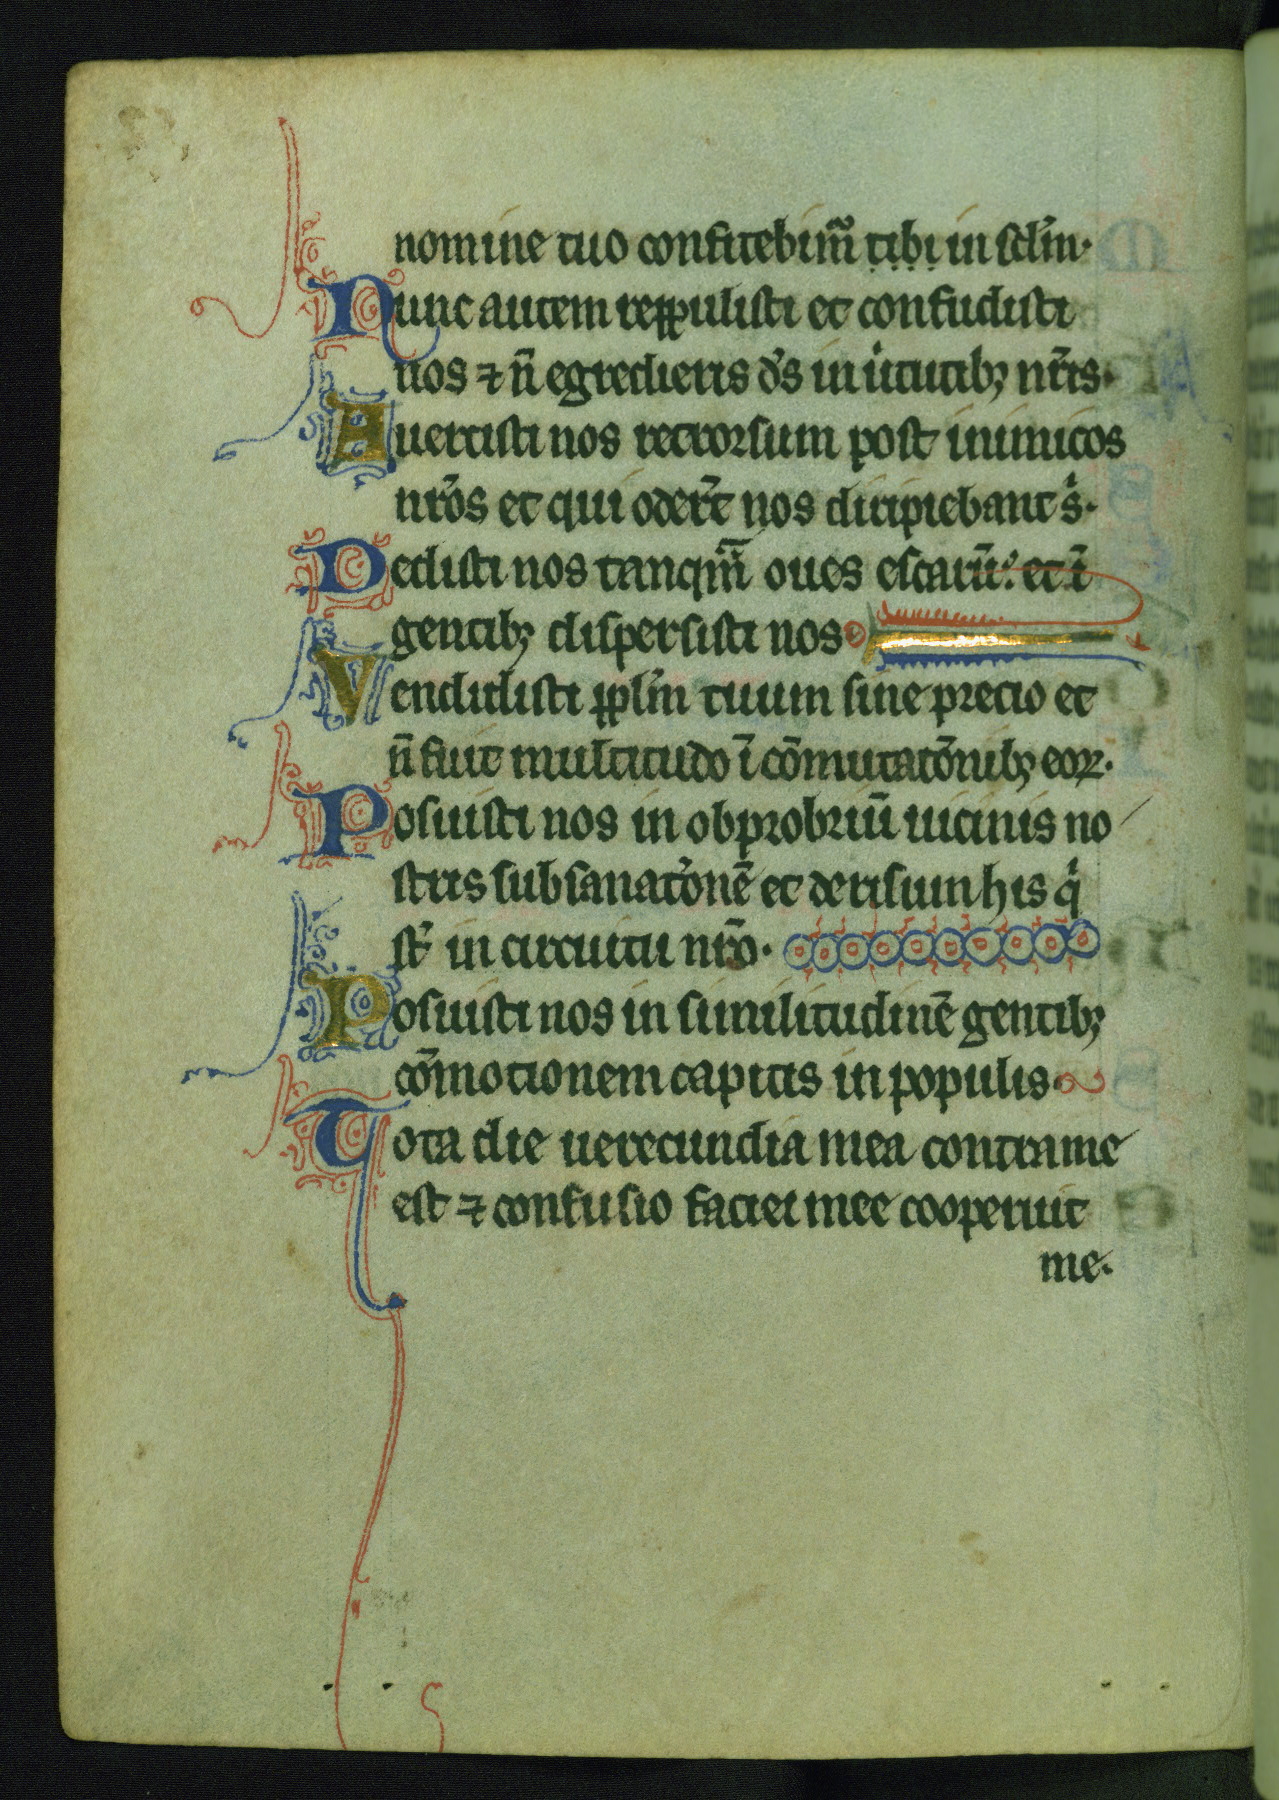 nomine tuo confitebim̃ tibi in sclm̃.
Nunc autem reppulisti et confudisti
nos ⁊ ñ egredieris d̃s in uͥtutibꝫ nr̃is.
Auertisti nos retrorsum post inimicos
nr̃os et qui oder̃t nos diripiebant sͥ.
Dedisti nos tanqͣm̃ oues escarũ: et ĩ
gentibꝫ dispersisti nos
Vendidisti pplm̃ tuum sine precio et
ñ fuit multitudo ĩ cõmutatõnibꝫ eoꝝ.
Posuisti nos in obprobriũ uicinis no
stris subsanatõnẽ et derisum his qͥ
st̃ in circuitu nr̃o.
Posuisti nos in similitudinẽ gentibꝫ
cõmotionem capitis in populis.
Tota die uerecundia mea contra me
est ⁊ confusio faciei mee cooperuit
me.